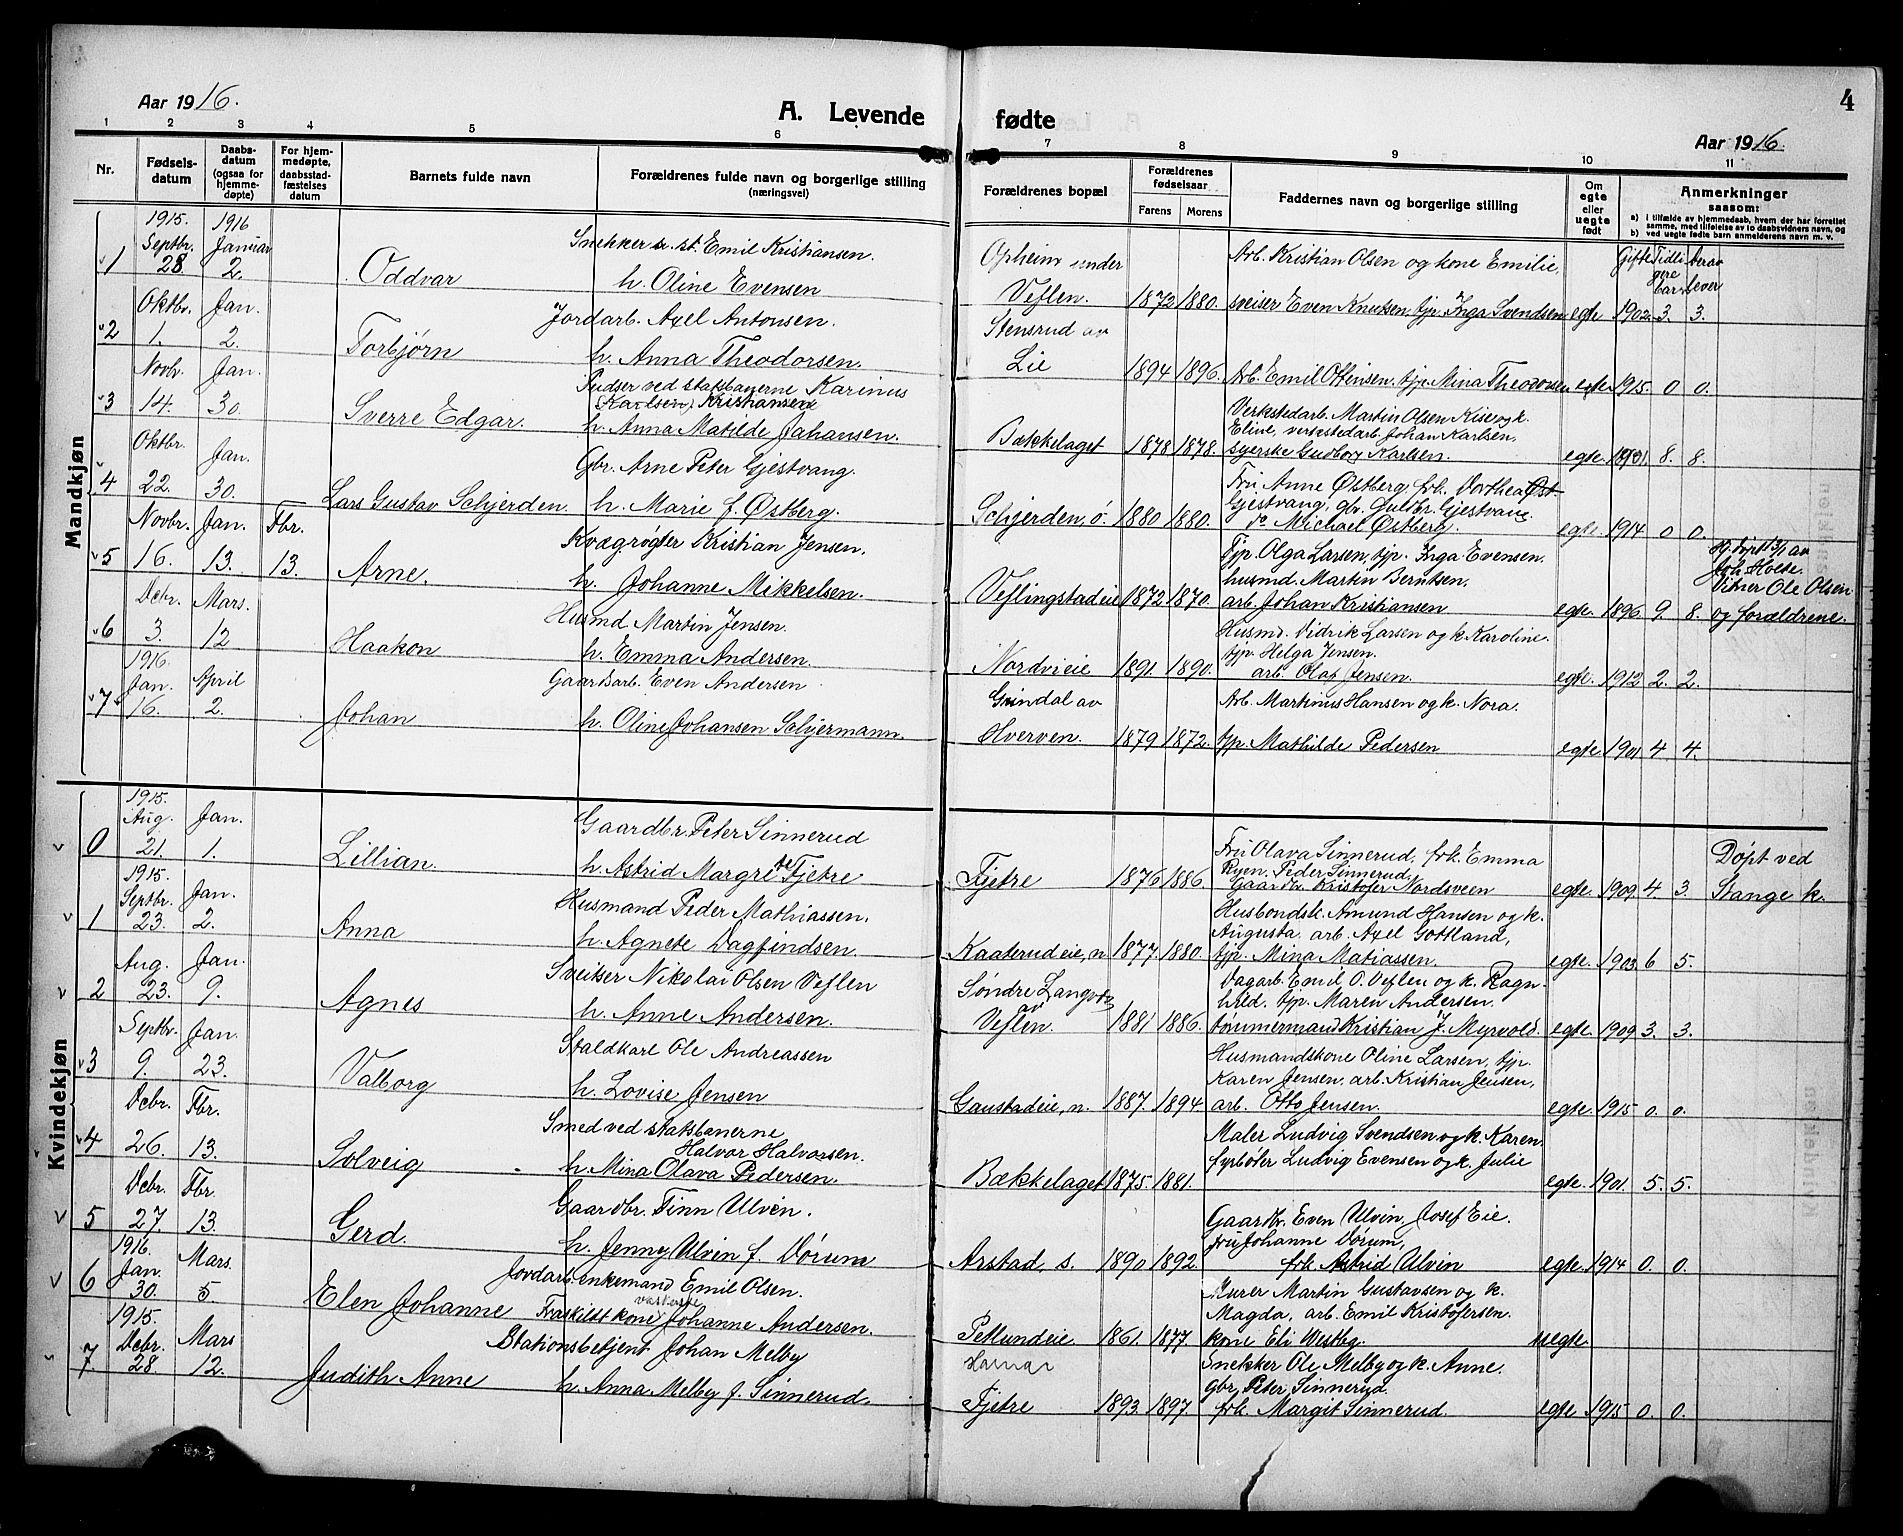 Aar 1916.
A. Levende fødte
4
Aar 1916.
1 2 3 4 5 6 7 8 9 10 11
Nr.
Fødselsdatum
Daabsdatum (ogsaa for hjemmedøpte)
For hjemmedøpte, daabsstadfæstelses datum
Barnets fulde navn
Forældrenes fulde navn og borgerlige stilling (næringsvei)
Forældrenes bopæl
Forældrenes fødselsaar
Farens Morens
Faddernes navn og borgerlige stilling
Om egte eller uegte født
Anmerkninger saasom:
a) i tilfælde av hjemmedaab, hvem der har forrettet samme, med tilføielse av to daabsvidners navn, og
b) ved uegte fødte barn anmelderens navn m. v.
Gifte Tidligere barn derav lever
Mandkjøn
1 1915. Septbr. 28. 1916 Januar 2. Oddvar
Snekker Emil Kristiansen.
h. Oline Evensen
Opheim under Veflen. 1872 1880.
Arb. Kristian Olsen og kone Emilie,
sveiser Even Knutsen, tjp. Inga Svendsen egte 1902. 3. 3.
2 Oktbr. 1. Jan. 2. Torbjørn
Jordarb. Axel Antonsen.
h. Anna Theodorsen.
Stensrud av Lie 1894 1896.
Arb. Emil Ottinsen, tjp. Mina Theodorsen egte 1915. 0 0.
3 Novb. 14. Jan. 30. Sverre Edgar.
Pudser ved statsbanerne Karinus
Karlsen, Kristiansen
h. Anna Matilde Johansen.
Bækkelaget 1878 1878.
Verkstedarb. Martin Olsen Kise og k.
Eline, verkstedarb. Johan Karlsen,
syerske Gudborg Karlsen. egte. 1901. 8. 8.
4 Oktbr. 22. Jan. 30. Lars Gustav Schjerden
Gbr. Arne Peter Gjestvang.
h. Marie f. Østberg.
Schjerden, ø. 1880 1880.
Fru Anne Østberg, frk. Dorthea Øst-
Gjestvang, gbr. Guldbr. Gjestvang
do Michael Østberg. egte. 1914 0 0.
5 Novbr. 16. Jan. 13. Fbr. 13. Arne.
Kvægrøgter Kristian Jensen.
h. Johanne Mikkelsen.
Veflingstadeie 1872 1870.
Tjp. Olga Larsen, tjp. Inga Evensen.
husmd. Martin Berntsen,
arb. Johan Kristiansen egte. 1896. 9. 8.
Hj. døpt 13/1 av
Joh. Holte.
Vitner Ole Olsen
og forældrene.
6 Dcbr. 3. Mars. 12 Haakon
Husmd Martin Jensen.
h. Emma Andersen.
Nordvieie 1891. 1890.
Husmd. Didrik Larsen og k. Karoline.
tjp. Helga Jensen.
arb. Olaf Jensen. egte. 1912 2. 2.
7 1916. Jan. 16. April 2. Johan
Gaardsarb. Even Andersen
h. Oline Johansen Schjermann.
Grindal av Hverven. 1879 1872.
Arb. Martinus Hansen og k. Nora.
tjp. Mathilde Pedersen egte. 1901 4 4.
Kvindekjøn
0 1915. Aug. 21. Jan. 1. Lillian.
Gaardbr. Peter Sinnerud
h. Astrid Margrete Fjetre
Fjetre 1876 1886.
Fru Olava Sinnerud, frk. Emma
Ryen, Peder Sinnerud,
Gaardbr. Kristofer Nordsveen egte. 1909. 4. 3.
Døpt ved Stange k.
1 1915. Septbr. 23. Jan. 2. Anna
Husmand Peder Mathiassen.
h. Agnete Dagfindsen.
Kaaterudeie, n. 1877. 1880.
Husbondsk. Amund Hansen og k.
Augusta, arb. Axel Gotland,
tjp. Mina Matiassen. egte. 1903. 6 5.
2 Aug. 23. Jan. 9. Agnes
Sveitser Nikolai Olsen Veflen
h. Anne Andersen.
Søndre Langvog av Veflen. 1881 1886.
Dagarb. Emil O. Veflen og k. Ragn-
hild. tjp. Maren Andersen.
tømmermand Kristian J. Myrvold. egte. 1909 3. 3.
3 Septbr. 9. Jan. 23. Valborg
Staldkarl Ole Andreassen
h. Lovise Jensen
Gaustadeie, n. 1887. 1894
Husmandskone Oline Larsen, tjp.
Karen Jensen, arb. Kristian Jensen,
arb. Otto Jensen. egte. 1915 0. 0.
4 Dcbr. 26. Fbr. 13. Solveig
Smed ved statsbanerne
Halvor Halvorsen.
h. Mina Olava Pedersen.
Bækkelaget 1875. 1881.
Maler Ludvig Svendsen og k. Karen.
fyrbøter Ludvig Evensen og k. Julie egte. 1901. 5. 5.
5 Dcbr. 27. Fbr. 13. Gerd.
Gaardbr. Finn Ulvin.
h. Jenny Ulvin f. Dørum
Arstad, s. 1890 1892
Gaardbr. Even Ulvin, Josef Eie.
Fru Johanne Dørum,
frk. Astrid Ulvin egte. 1914 0. 0.
6 1916. Jan. 30. Mars. 5 Elen Johanne
Jordarb. enkemand Emil Olsen.
Fraskilt kone Johanne Andersen.
Petlundeie 1861. 1877.
Murer Martin Gustavsen og k.
Magda, arb. Emil Kristofersen.
kone Eli Westby. uegte
7 1915. Dcbr. 28. Mars 12. Judith Anne
Stationsbetjent Johan Melby
h. Anna Melby f. Sinnerud.
Hamar
Fjetre 1893. 1897
Snekker Ole Melby og k. Anne.
gbr. Peter Sinnerud.
frk. Margit Sinnerud. egte. 1915 0. 0.